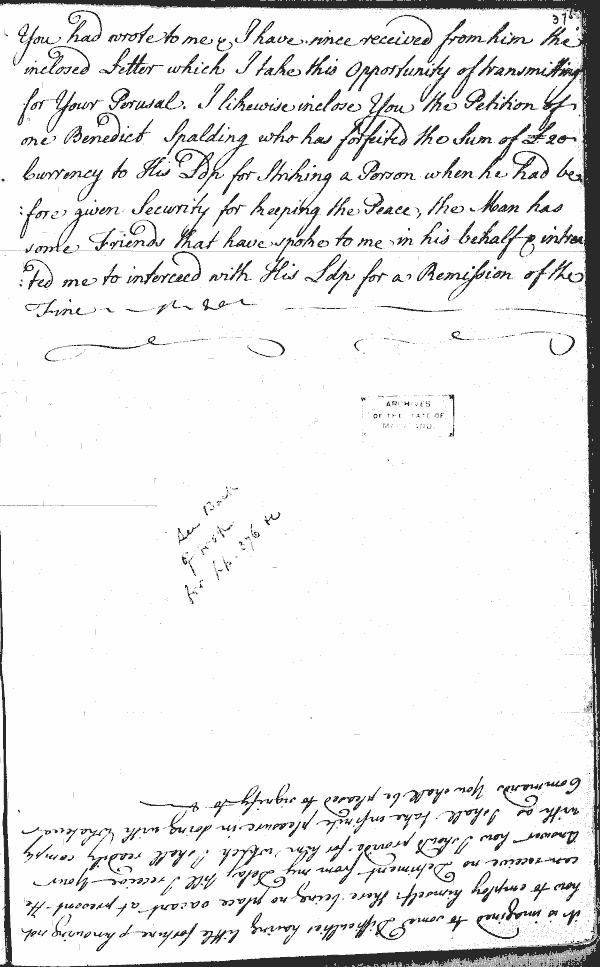 376
You had wrote to me & I have since received from him the
inclosed Letter which I take this Opportunity of transmitting
for Your Perusal. I likewise inclose You the Petition of
one Benedict Spalding who has forfeited the Sum of £20
Currency to His Ldp for Striking a Person when he had be
:fore given Security for keeping the Peace, the Man has
some Friends that have spoke to me in his behalf & intrea
:ted me to interceed with His Ldp for a Remission of the
Fine
ARCHIVES
OF THE STATE OF
MARYLAND
See Back
of book
for pp. 376
it is imagined to some Difficulties having little fortune & knowing not
how to employ himself: there being no place vacant at present He
can receive no Detriment from my Delay till I receive Your
Answer how I should provide for him which I shall readily comply
with as I shall take infinite pleasure in doing with whatever
Commands You shall be pleased to signify to &